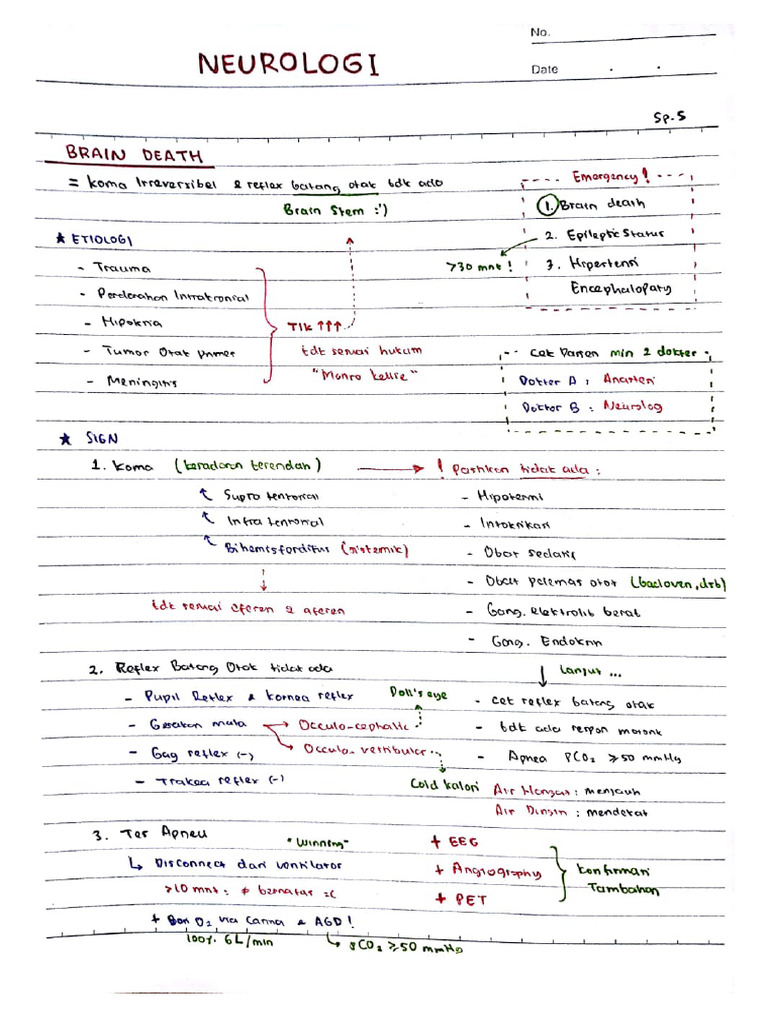 No.
NEUROLOGI
Date
Sp.S
BRAIN DEATH
= Koma Irreversibel & reflex batang otak tdk ada
Brain Stem :')
Emergency!
1. Brain death
2. Epileptic Status
>30 mnt !
3. Hipertensi
Encephalopaty
★ ETIOLOGI
- Trauma
- Perdarahan Intrakranial
- Hipoksia
- Tumor Otak primer
- Meningitis
TIK ↑↑↑
tdk sesuai hukum
"Monro kellie"
Cek Pasien min 2 dokter
Dokter A : Anastesi
Dokter B : Neurolog
★ SIGN
1. Koma (kesadaran terendah) → ! Pastikan tidak ada :
Supra tentorial
Infra tentorial
Bihemisfer difus (sistemik)
tdk sesuai eferen & aferen
- Hipotermi
- Intoksikasi
- Obat sedatif
- Obat pelemas otot (bacloven, dsb)
- Gang. elektrolit berat
- Gang. Endokrin
Lanjut ...
- cek reflex batang otak
- tdk ada respon motorik
- Apnea PCO₂ ≥50 mmHg
2. Reflex Batang Otak tidak ada
- Pupil Reflex & Kornea reflex
- Gerakan mata → Occulo-cephalic
Doll's eye
→ Occulo-vestibular
- Gag reflex (-)
- Trakea reflex (-)
Cold kalori
Air Hangat : menjauh
Air Dingin : mendekat
3. Tes Apneu
"Winning"
↳ Disconnect dari ventilator
>10 mnt : ≠ bernafas :(
+ Beri O₂ via Carina & AGD!
100% 6L/min
↳ PCO₂ ≥50 mmHg
+ EEG
+ Angiography
+ PET
Konfirmasi
Tambahan